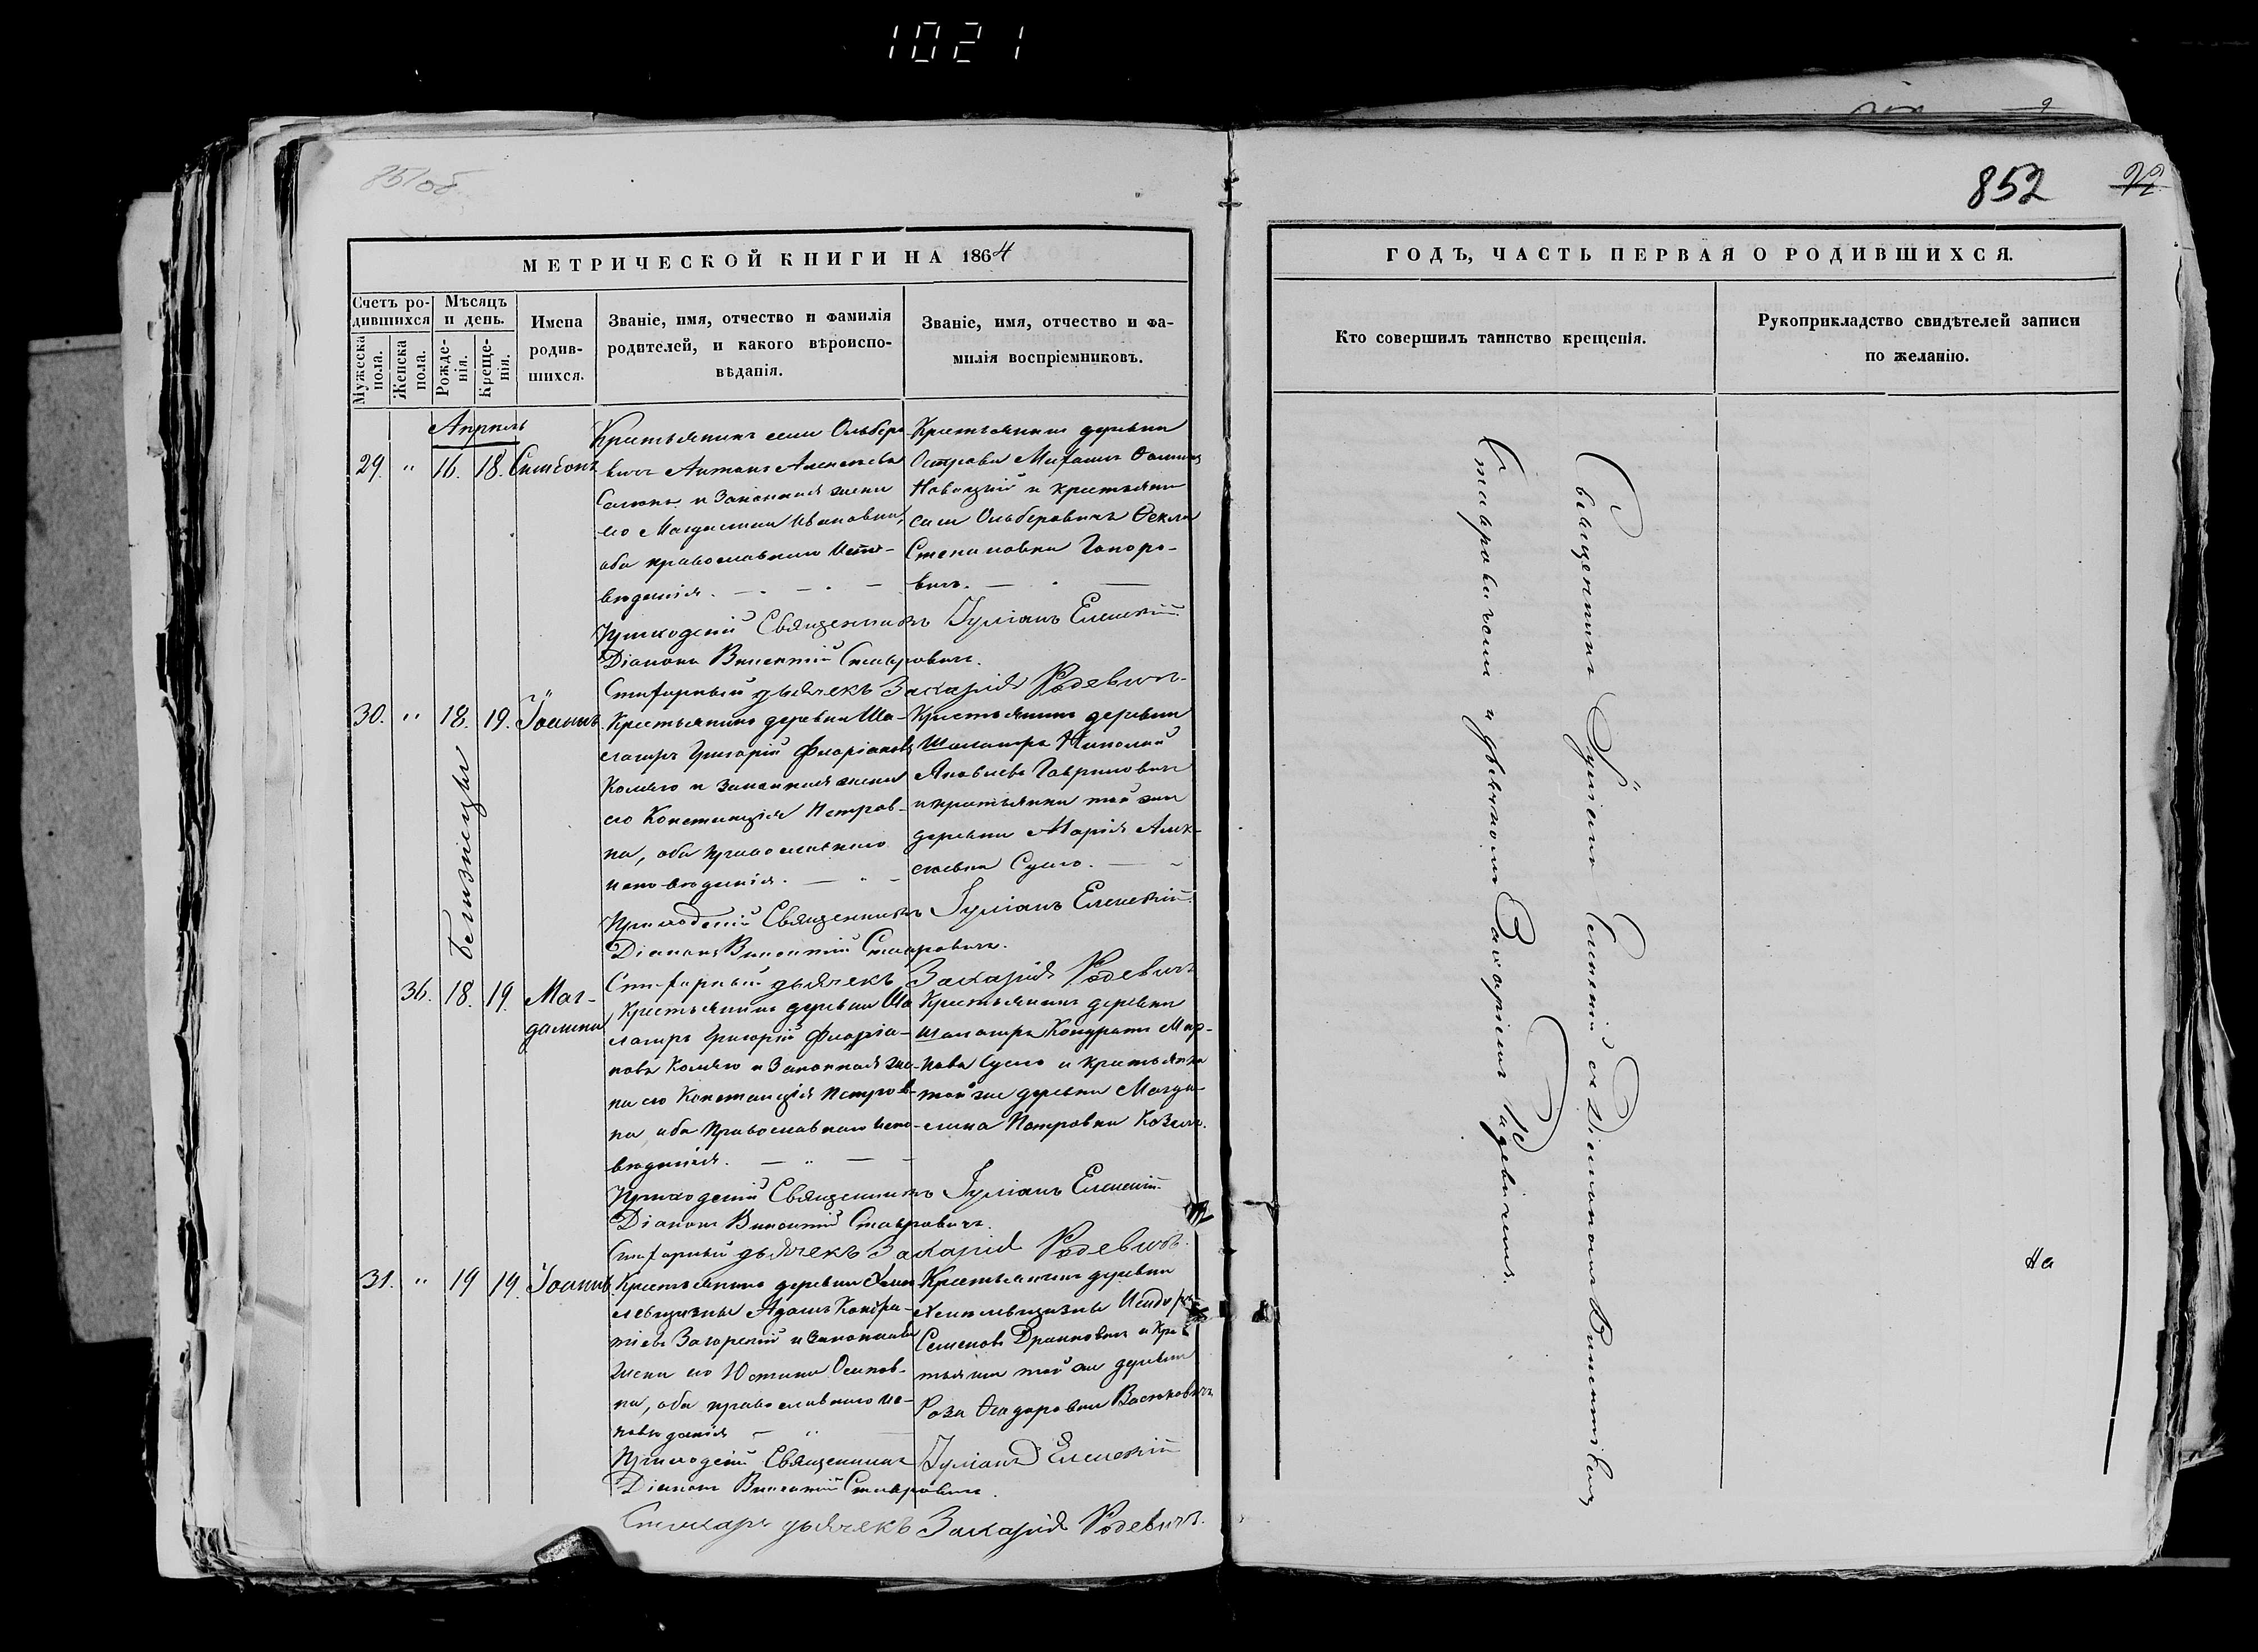 1021
851об.
852
МЕТРИЧЕСКОЙ КНИГИ НА 1864
Счетъ родившихся
Мужеска пола.
Женска пола.
Мѣсяцъ и день.
Рожденія.
Крещенія.
Имена родившихся.
Званіе, имя, отчество и фамилія родителей, и какого вѣроисповѣданія.
Званіе, имя, отчество и фамилія воспріемниковъ.
Апрѣль
29. " 16. 18. Симеонъ
Крестьянинъ села Ольберо-
вичъ Антонъ Алексѣевъ
и законная жена
его Магдалина Ивановна,
оба православнаго испо-
вѣданія.
Крестьянинъ деревни
Острова Михаилъ
Новицкій и крестьянка
села Ольберовичъ Ѳекла
Степановна Гапоро-
вичъ.
Приходскій Священникъ Іуліанъ Еленскій
Діаконъ Викентій Ставровичъ.
Стихарный дьячекъ Захарія Родевичъ.
30. " 18. 19. Іоаннъ
Близнецы
Крестьянинъ деревни Ша-
лагиръ Григорій Флоріановъ
Коляго и законная жена
его Констанція Петров-
на, оба православнаго
исповѣданія.
Крестьянинъ деревни
Шалагиръ Николай
Яковлевъ Гавриловичъ
и крестьянка той же
деревни Марія Алек-
сѣевна Суло.
Приходскій Священникъ Іуліанъ Еленскій.
Діаконъ Викентій Ставровичъ.
Стихарный дьячекъ Захарія Родевичъ
36. 18. 19. Маг-
далина
Крестьянинъ деревни Ша-
лагиръ Григорій Флоріа-
новъ Коляго и законная же-
на его Констанція Петров-
на, оба православнаго испо-
вѣданія.
Крестьянинъ деревни
Шалагиръ Кондратъ Мар-
новъ Суло и крестьянка
той же деревни Магда-
лина Петровна Козелъ.
Приходскій Священникъ Іуліанъ Еленскій.
Діаконъ Викентій Ставровичъ.
Стихарный дьячекъ Захарія Родевичъ.
31. " 19 19. Іоаннъ
Крестьянинъ деревни
Адамъ Кондра-
тіевъ Загорскій и законная
жена его Юстина Осипов-
на, оба православнаго ис-
повѣданія
Крестьянинъ деревни
Исидоръ
Семеновъ Драниовичъ и кре-
стьянка той же деревни
Роза Ѳеодоровна Васюковичъ
Приходскій Священникъ Іуліанъ Еленскій
Діаконъ Викентій Ставровичъ.
Стихарн дьячекъ Захарія Родевичъ.
ГОДЪ, ЧАСТЬ ПЕРВАЯ О РОДИВШИХСЯ.
Кто совершилъ таинство крещенія.
Рукоприкладство свидѣтелей записи по желанію.
Священникъ Іуліанъ Еленскій съ Діакономъ Викентіемъ
Ставровичемъ и дьячкомъ Захаріемъ Родевичемъ.
На